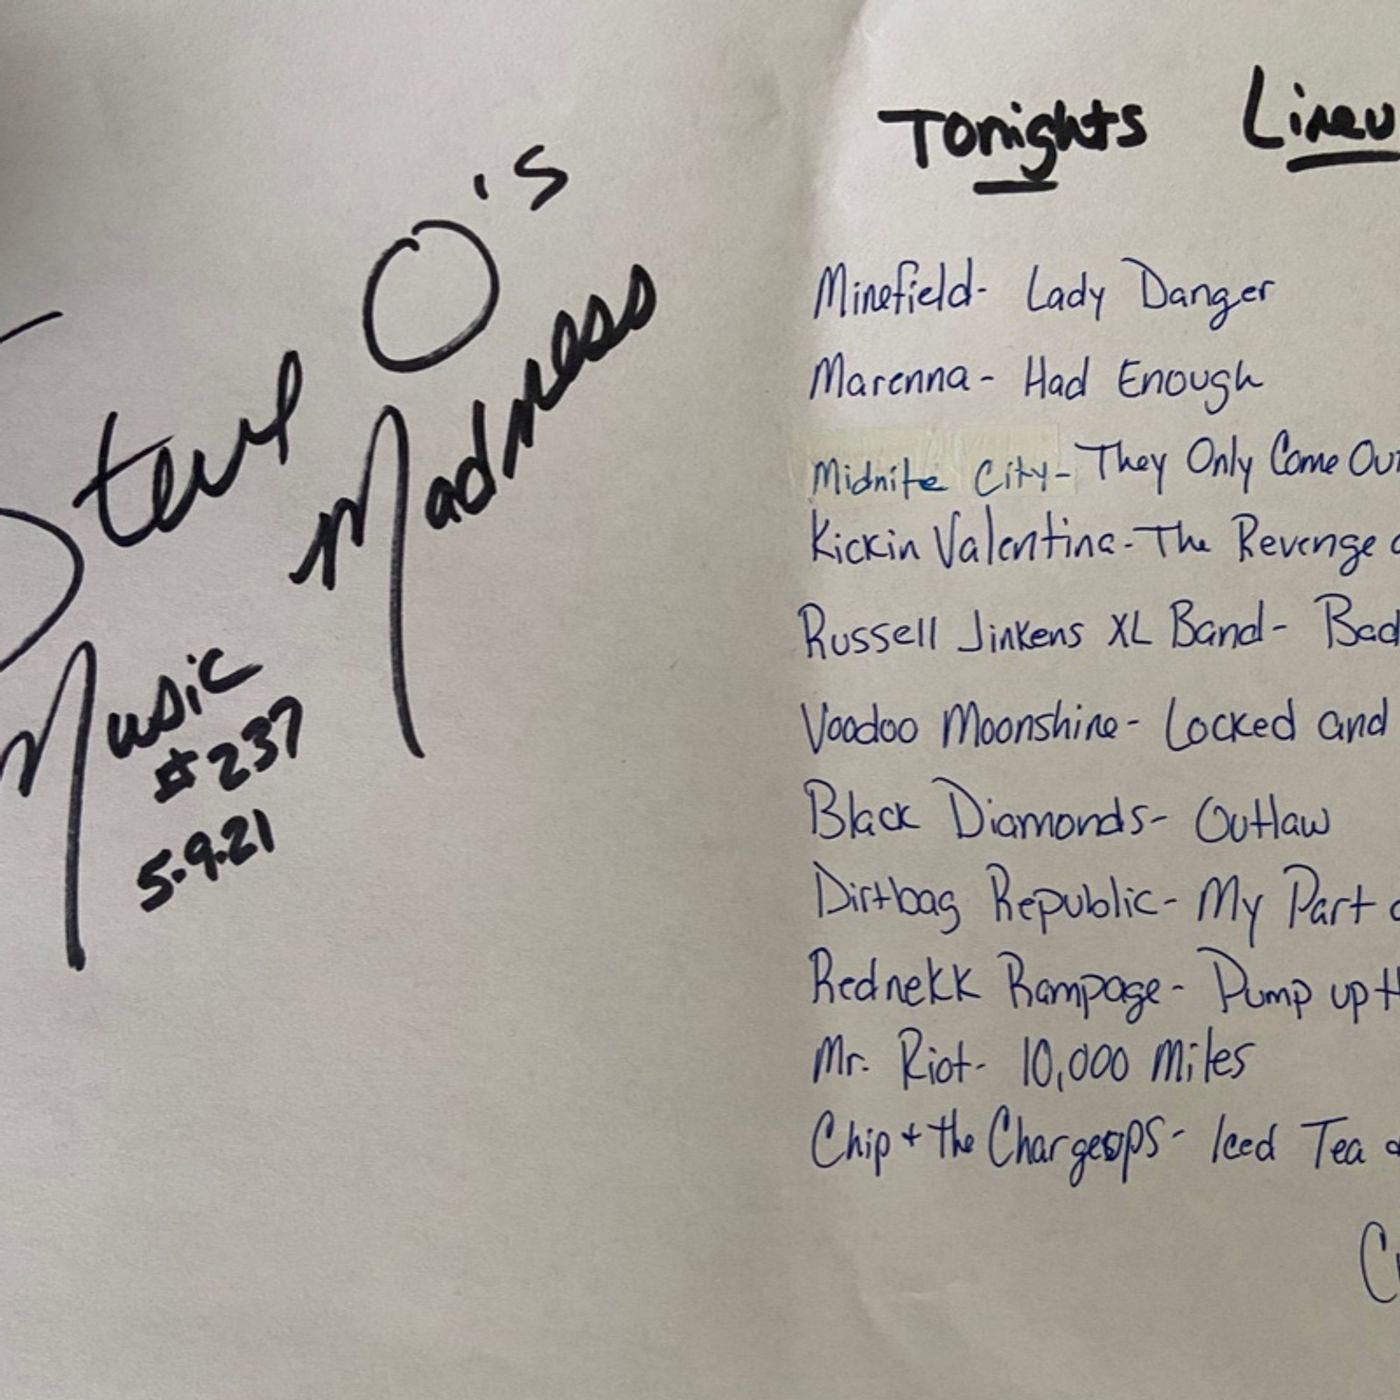 Steve O's
Music Madness
#237
5.9.21
Tonights Lineu
Minefield- Lady Danger
Marenna- Had Enough
Midnite City- They Only Come Out
Kickin Valentina- The Revenge o
Russell Jinkens XL Band- Bad
Voodoo Moonshine- Locked and
Black Diamonds- Outlaw
Dirtbag Republic- My Part o
Rednekk Rampage- Pump up th
Mr. Riot- 10,000 Miles
Chip + the Chargeops- Iced Tea &